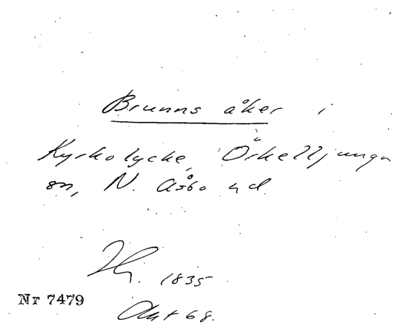 Brunns åker i
Kyrkolycke, Örkelljunga
sn, N. Åsbo hd
1835
Nr 7479
Akt 68.